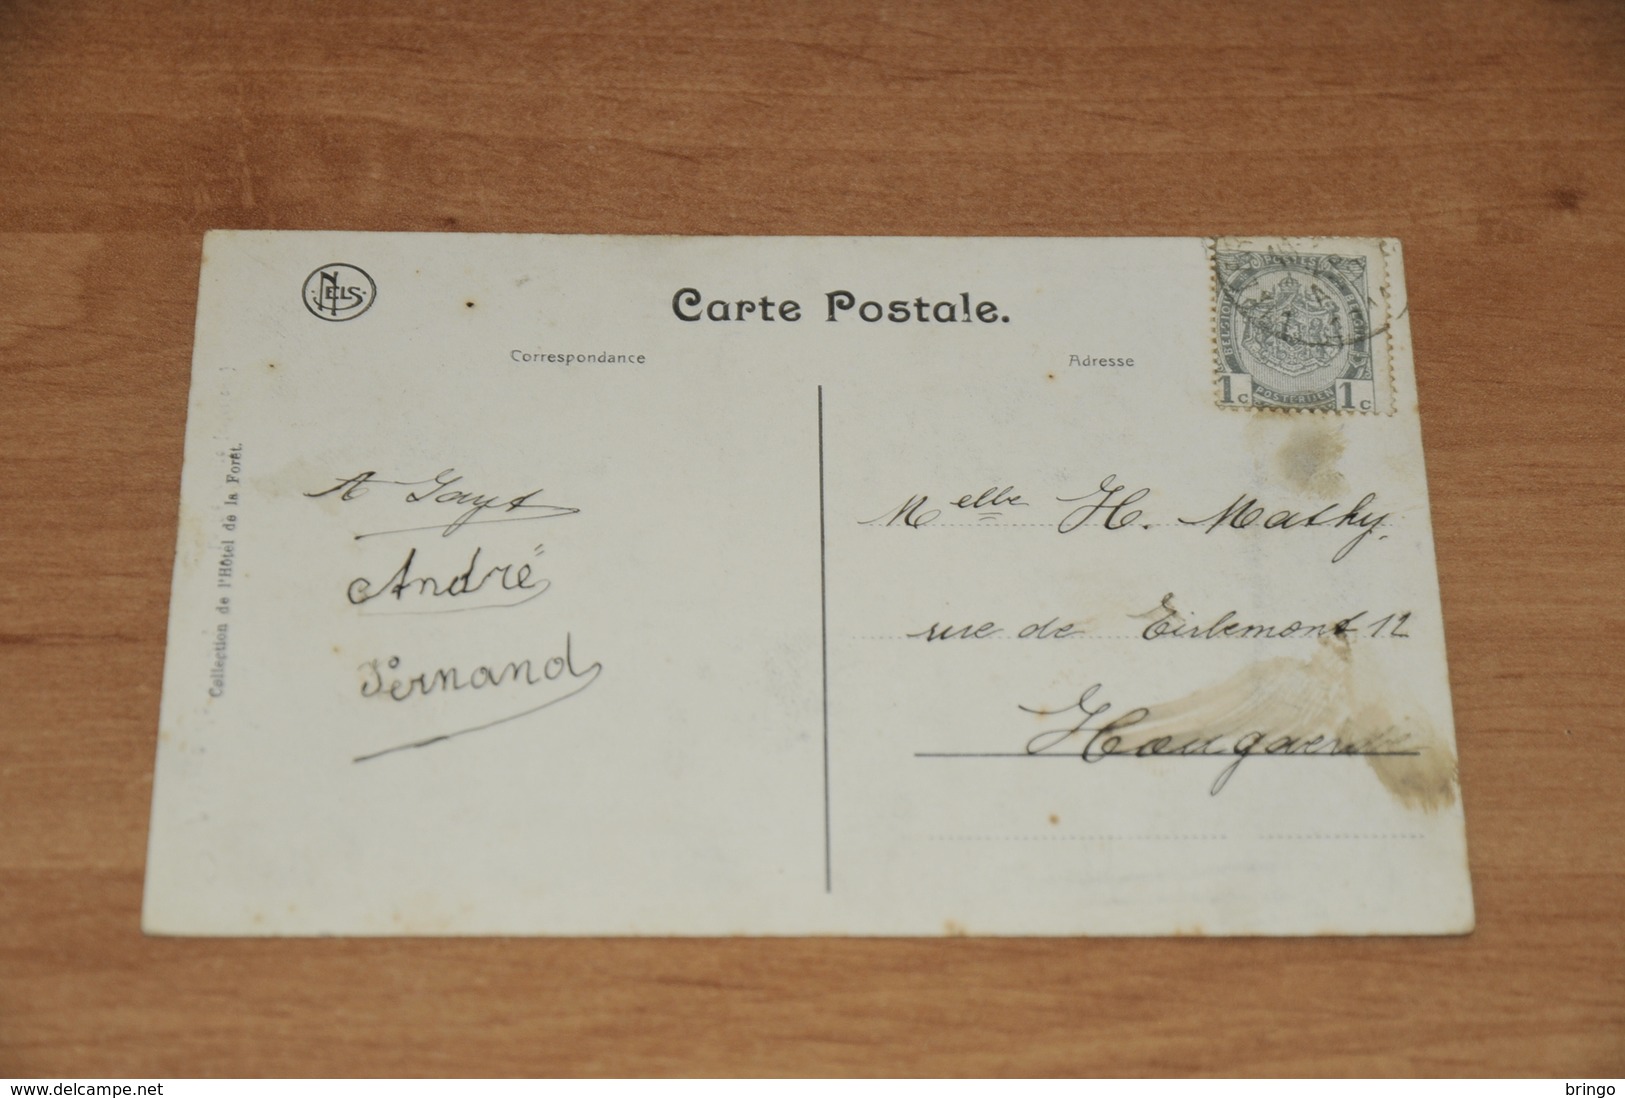 NELS
Carte Postale.
Correspondance
Adresse
POSTES
BELGIQUE
BELGIE
1c
POSTERIJEN
1c
Collection de l'Hôtel de la Forêt.
André
Fernand
Melle H. Mathy.
rue de Tirlemont 12
Hougaerde
delcampe.net
bringo